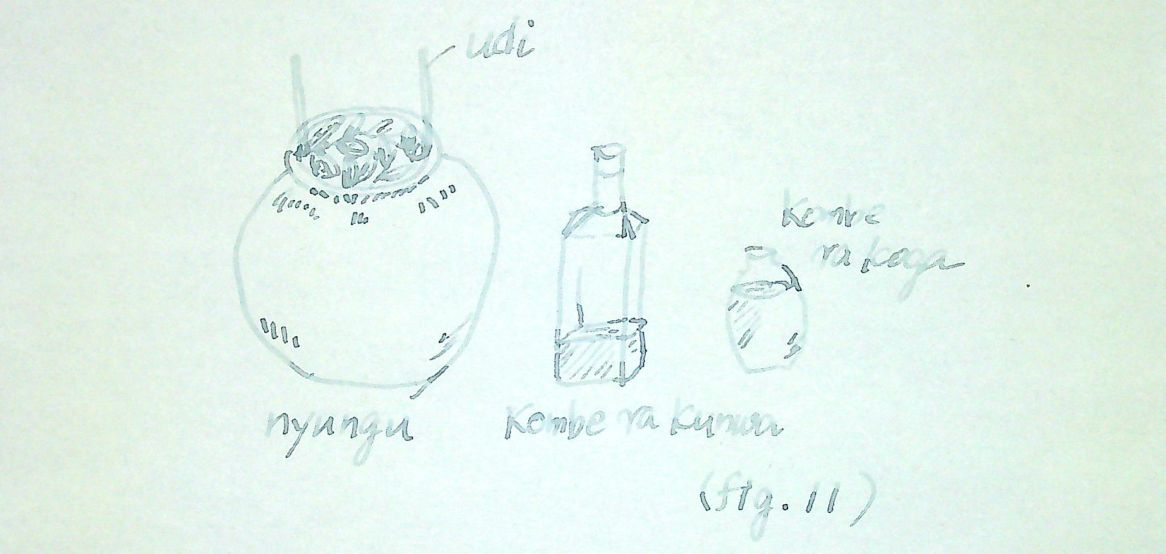 udi
Kombe
ra koga
nyungu
Kombe ra kunwa
(fig. 11)